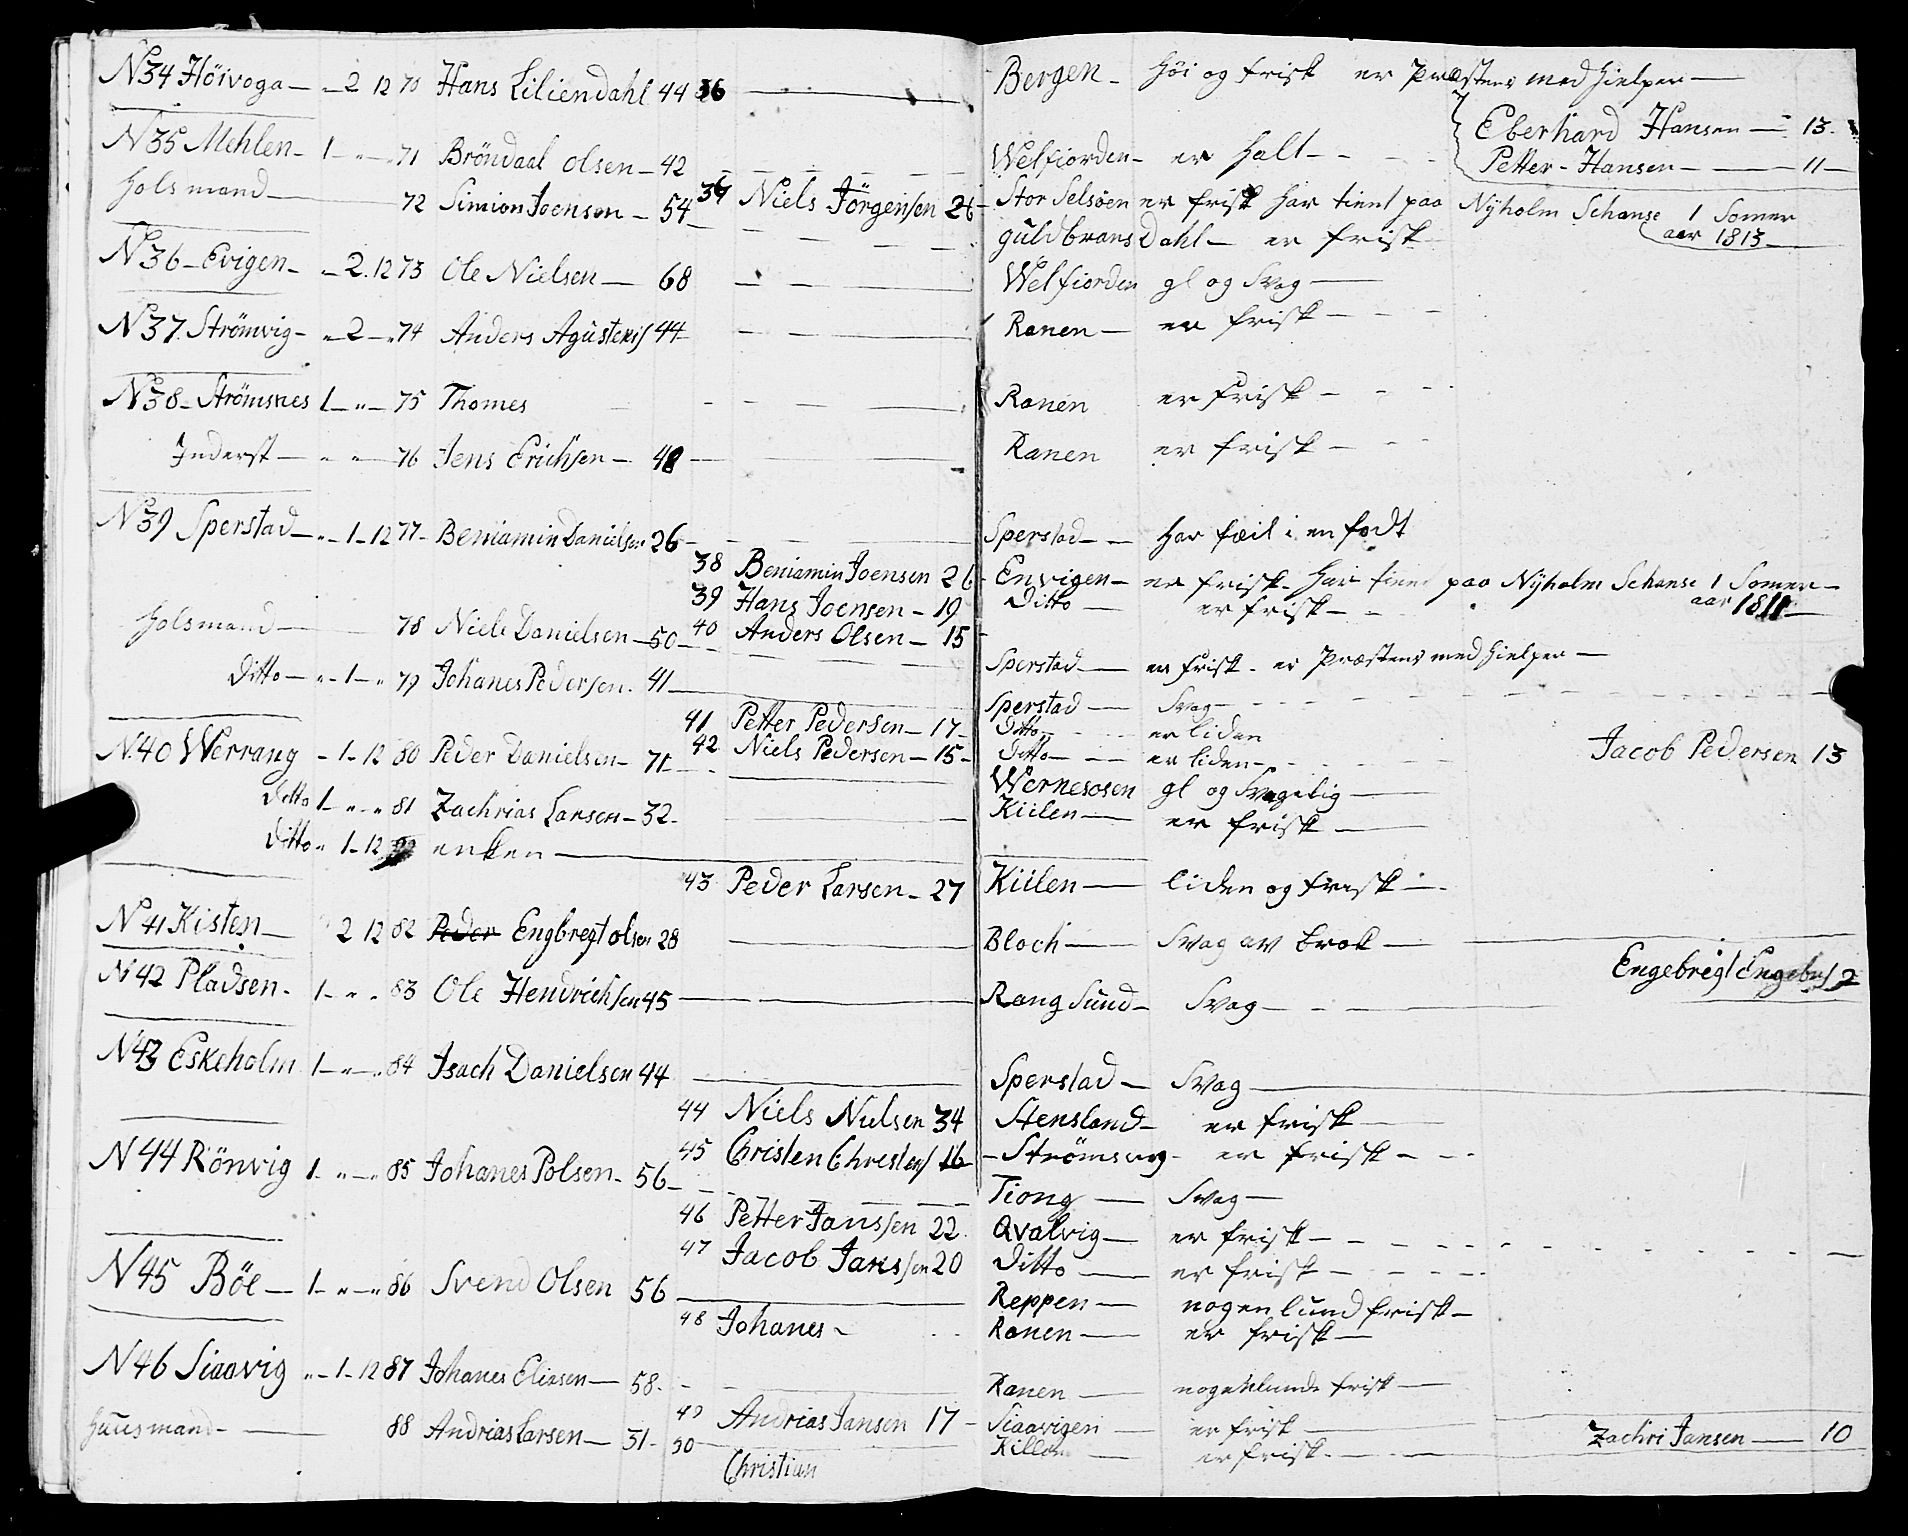 N 34 Höivoga — „ 2 12 70 Hans Liliendahl 44 36 — Bergen — Höi og frisk er Præstens medhielper —
Eberhard Hansen — 13
N 35 Mehlen — 1 — „ — 71 Bröndaal Olsen — 42 Welfiorden — er Halt — Petter Hansen — 11
Holsmand — 72 Simion Joensen — 54
37 Niels Jörgensen 26 Stor Selsöen er frisk har tient paa Nyholm Schanse 1 Somer
aar 1813
guldbransDahl — er frisk
N 36 Evigen — „ 2. 12 73 Ole Nielsen — 68 Welfiorden gl og Svag —
N 37 Strömvig — „ 2 — „ 74 Anders Agustens 44 Ranen — er frisk —
N 38 Strömsnes 1 — „ — 75 Thomes Ranen er frisk —
Inderst — „ „ — 76 Jens Erichsen — 48 Ranen er frisk —
N 39 Sperstad — „ 1 — 12 77 Beniamin Danielsen 26 Sperstad — har fæil i en fodt
38 Beniamin Joensen 26 Envigen — er frisk har tient paa Nyholm Schanse 1 Somer —
aar 1811
39 Hans Joensen — 19 Ditto — er frisk —
Holsmand — 78 Niels Danielsen — 50 40 Anders Olsen — 15
Sperstad — er frisk er Præstens medhielper —
Ditto — „ 1 — „ 79 Johanes Pedersen. 41 Sperstad — Svag —
41 Petter Pedersen — 17 Ditto — er liden
N. 40 Werrang — 1 — 12 80 Peder Danielsen — 71 42 Niels Pedersen — 15 Ditto — er liden — Jacob Pedersen 13
Wernesosen gl og Svagelig —
Ditto 1 — „ — „ 81 Zachrias Larsen — 32 Kiilen — er frisk —
Ditto „ 1 — 12 enken —
43 Peder Larsen — 27 Kiilen — liden og frisk —
N 41 Kisten — 2 12 82 Peder Engbregt olsen 28 Bloch — Svag av brok — Engebregt Engebs 2
N 42 Pladsen — 1 — „ — 83 Ole Hendrichsen 45 Rangsund — Svag —
N 43 Eskeholm 1 — „ — 84 Isach Danielsen 44 Sperstad — Svag —
44 Niels Nielsen 34 Stensland — er frisk —
45 Christen Christens 16 Strömsvig — er frisk —
N 44 Rönvig 1 — „ — „ 85 Johanes Polsen — 56 Tiong — Svag —
46 Petter Janssen 22 Qvalvig — er frisk —
47 Jacob Janssen 20 Ditto — er frisk —
N 45 Böe — 1 — „ — „ 86 Svend Olsen 56 Reppen — nogenlund frisk —
48 Johanes — Ranen — er frisk —
N 46 Siaavig „ — 1 — 12 87 Johanes Eliasen — 58 Ranen — nogenlunde frisk —
49 Andrias Jansen 17 — Siaavigen — er frisk — Zachri Jansen — 10
Huusmand — 88 Andrias Larsen — 51 Killen — er frisk —
50 Christian